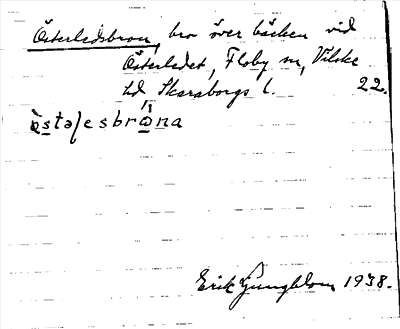 Österledsbron, bro över bäcken vid
Österledet, Floby sn, Vilske
hd Skaraborgs l. 22.
östəlesbrona
Erik Ljungblom 1938.